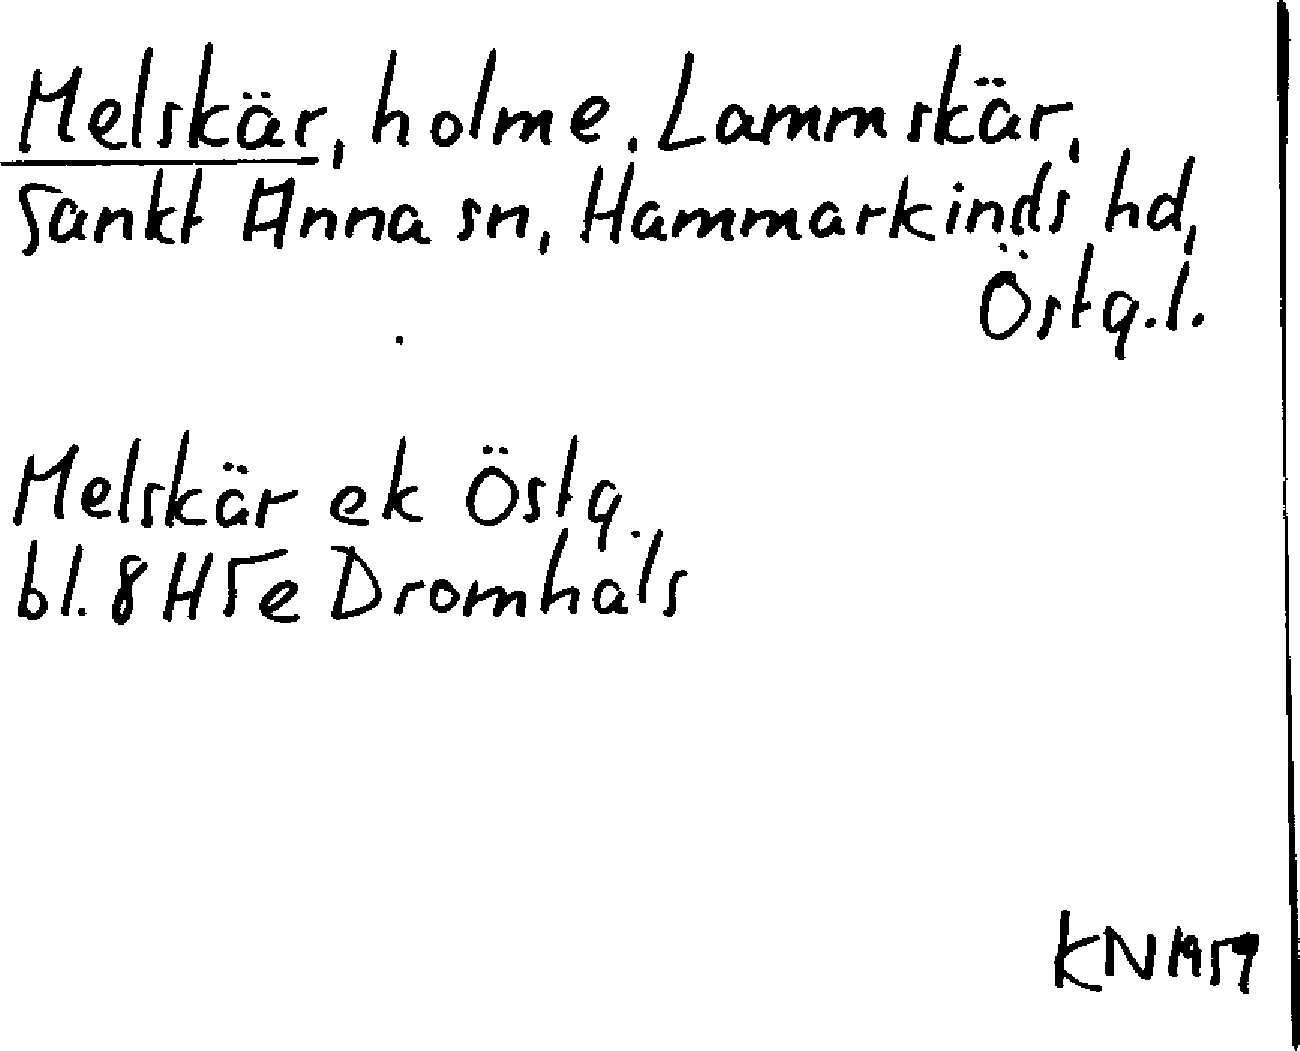 Melskär, holme, Lammskär,
Sankt Anna sn, Hammarkinds hd,
Östg.l.
Melskär ek Östg.
bl. 8 H 5e Dromhals
KN 1959